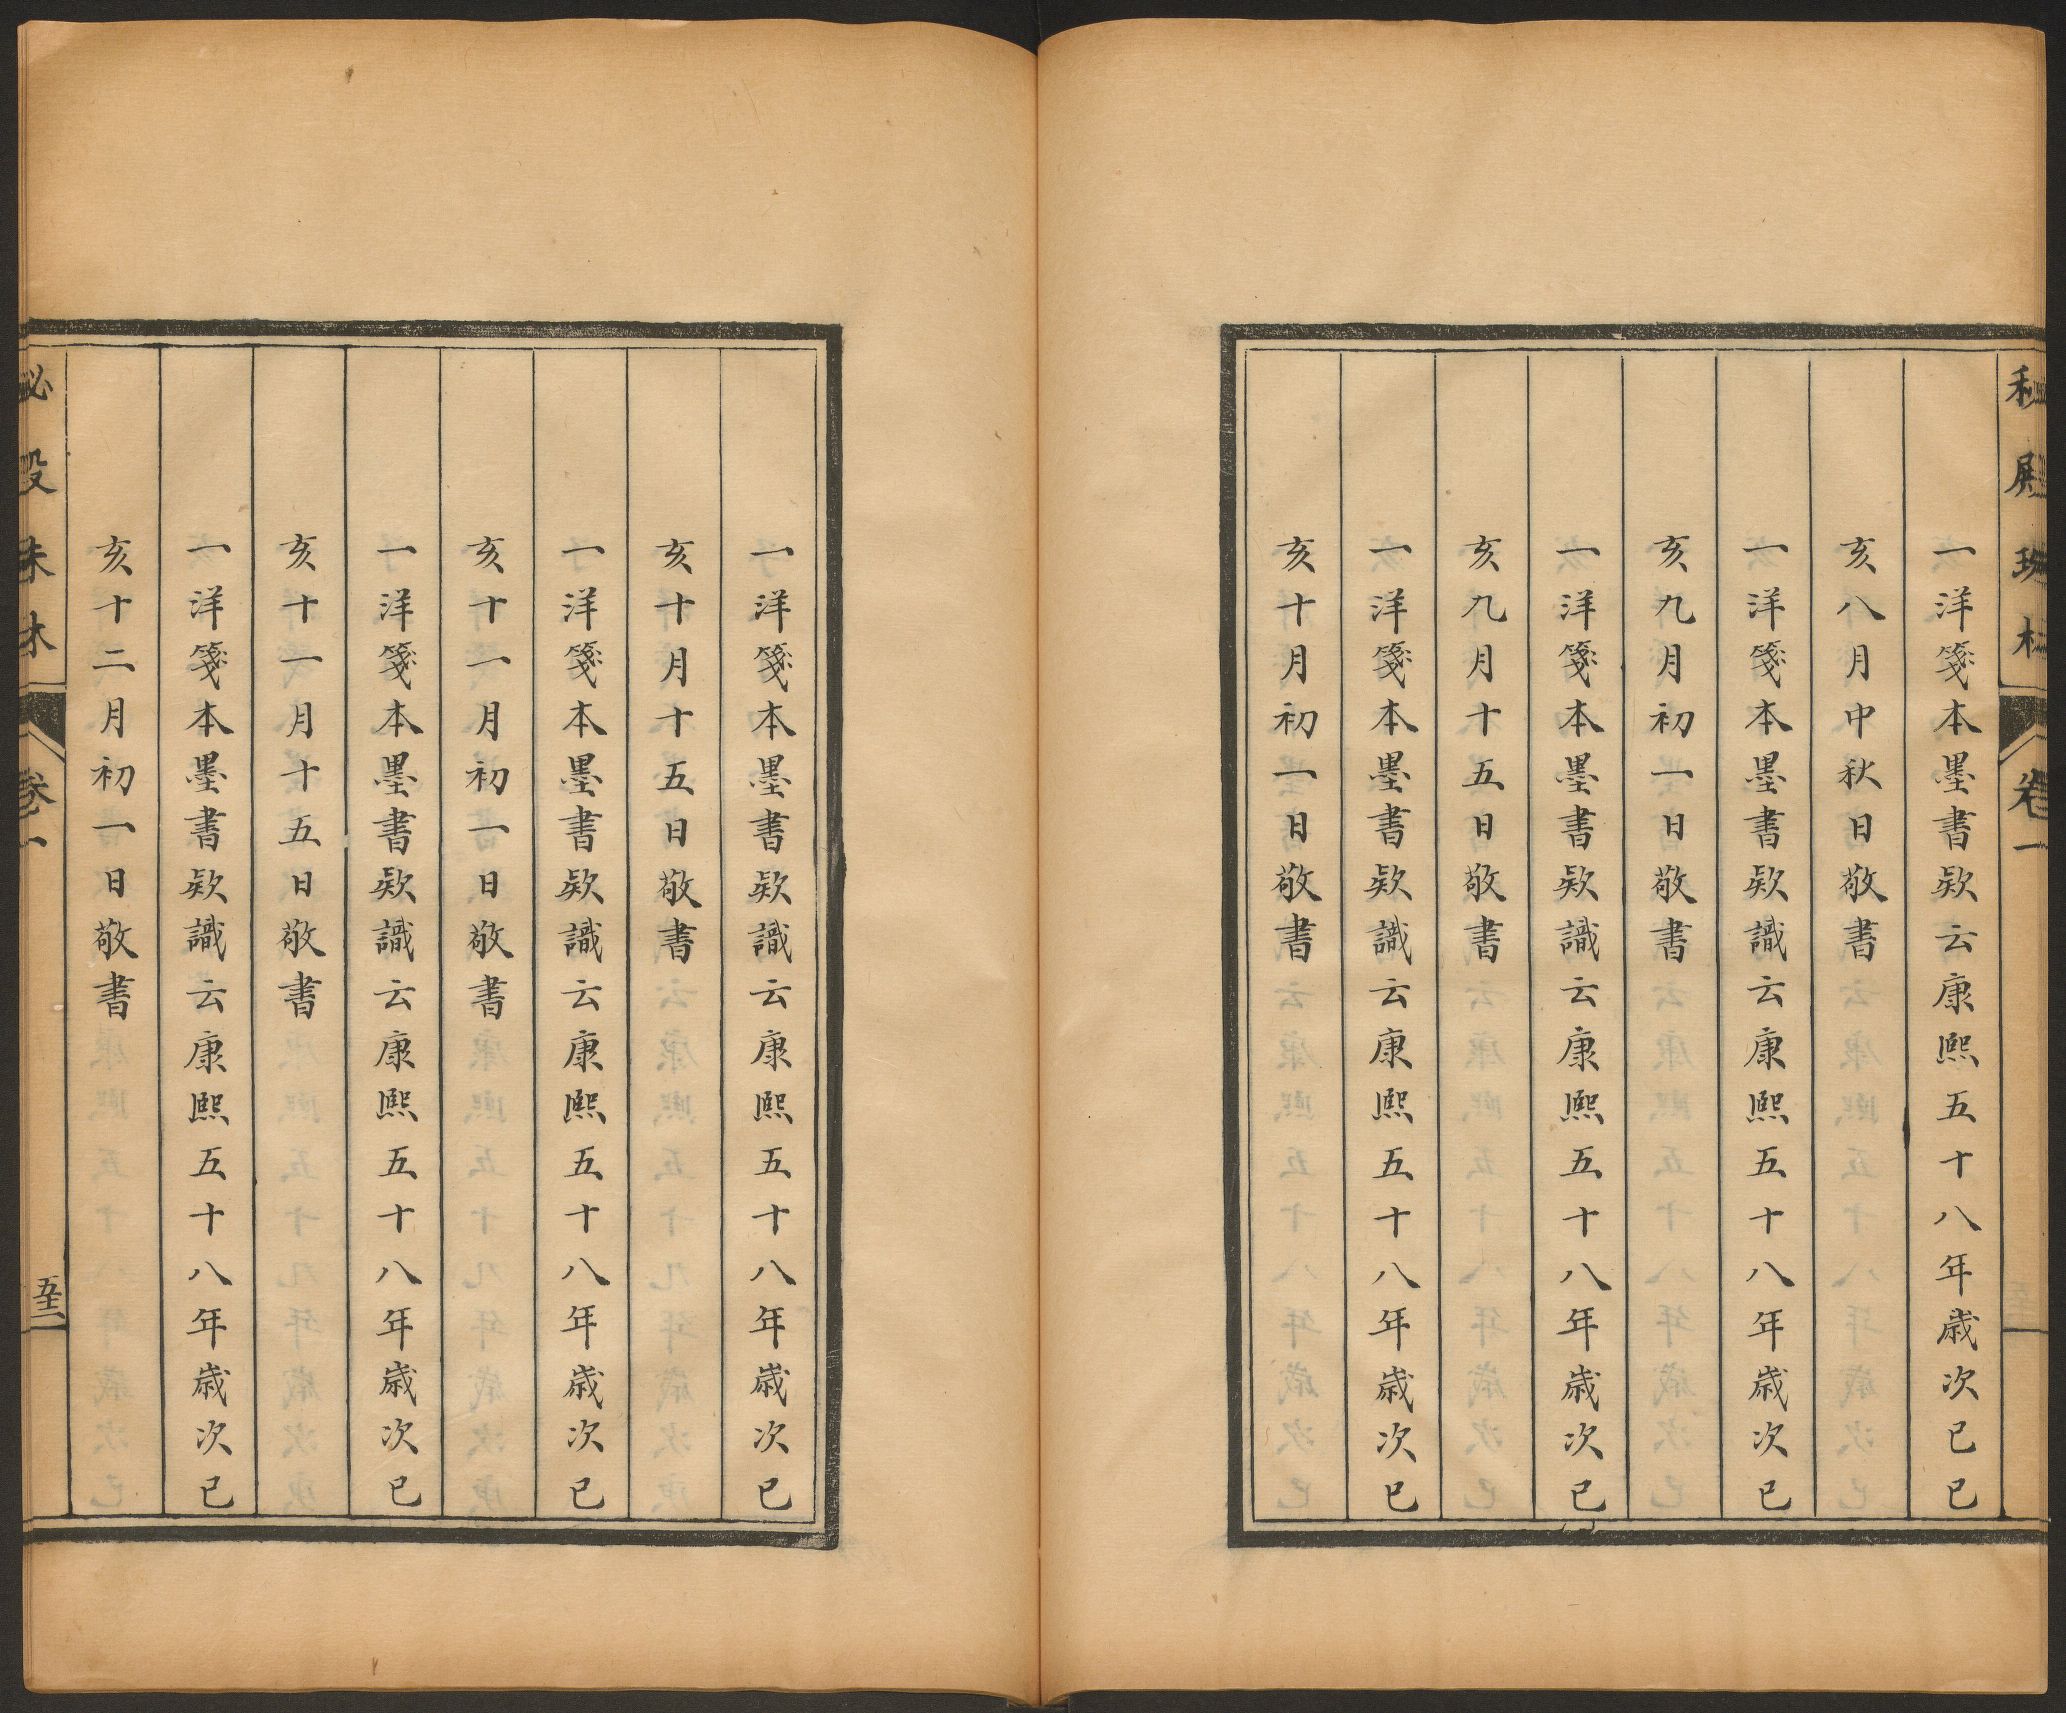 秘殿珠林
卷一
一洋箋本墨書欵識云康熙五十八年歲次己
亥八月中秋日敬書
一洋箋本墨書欵識云康熙五十八年歲次己
亥九月初一日敬書
一洋箋本墨書欵識云康熙五十八年歲次己
亥九月十五日敬書
一洋箋本墨書欵識云康熙五十八年歲次己
亥十月初一日敬書
一洋箋本墨書欵識云康熙五十八年歲次己
亥十月十五日敬書
一洋箋本墨書欵識云康熙五十八年歲次己
亥十一月初一日敬書
一洋箋本墨書欵識云康熙五十八年歲次己
亥十一月十五日敬書
一洋箋本墨書欵識云康熙五十八年歲次己
亥十二月初一日敬書
秘殿珠林
卷一